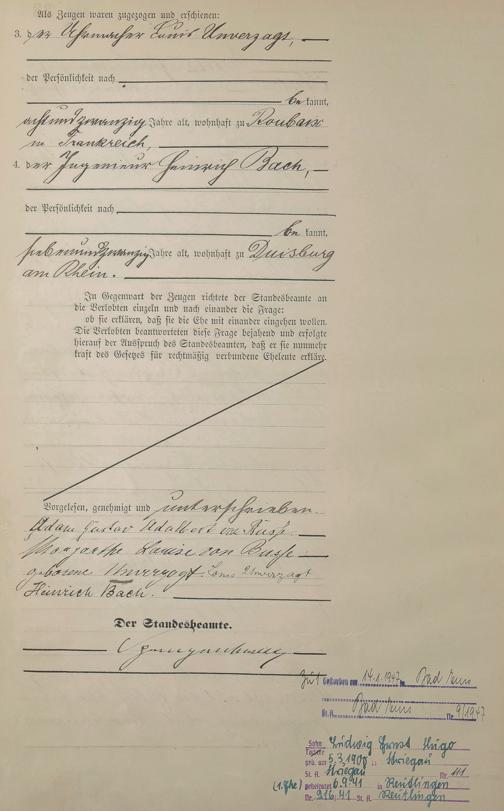 Als Zeugen waren zugezogen und erschienen:
3. der Uhrmacher Louis Unverzagt,
der Persönlichkeit nach
be kannt,
achtundzwanzig Jahre alt, wohnhaft zu Roubaix
in Frankreich,
4. der Ingenieur Heinrich Bach,
der Persönlichkeit nach
be kannt,
siebenundzwanzig Jahre alt, wohnhaft zu Duisburg
am Rhein.
In Gegenwart der Zeugen richtete der Standesbeamte an
die Verlobten einzeln und nach einander die Frage:
ob sie erklären, daß sie die Ehe mit einander eingehen wollen.
Die Verlobten beantworteten diese Frage bejahend und erfolgte
hierauf der Ausspruch des Standesbeamten, daß er sie nunmehr
kraft des Gesetzes für rechtmäßig verbundene Eheleute erkläre.
Vorgelesen, genehmigt und unterschrieben.
Adam Gustav Adalbert von Busse
Margarethe Louise von Busse
geborene Unverzagt. Louis Unverzagt
Heinrich Bach.
Der Standesbeamte.
Gestorben am 14.1.1947 in Bad
St.A. Bad Nr. 9/1947
Sohn Ludwig Ernst Hugo
Tochter
geb. am 5.3.1900 in Striegau
St. A. Striegau Nr. 111
(1. Ehe) geheiratet 6.9.41 in Reutlingen
Nr. 216/41 St. A. Reutlingen